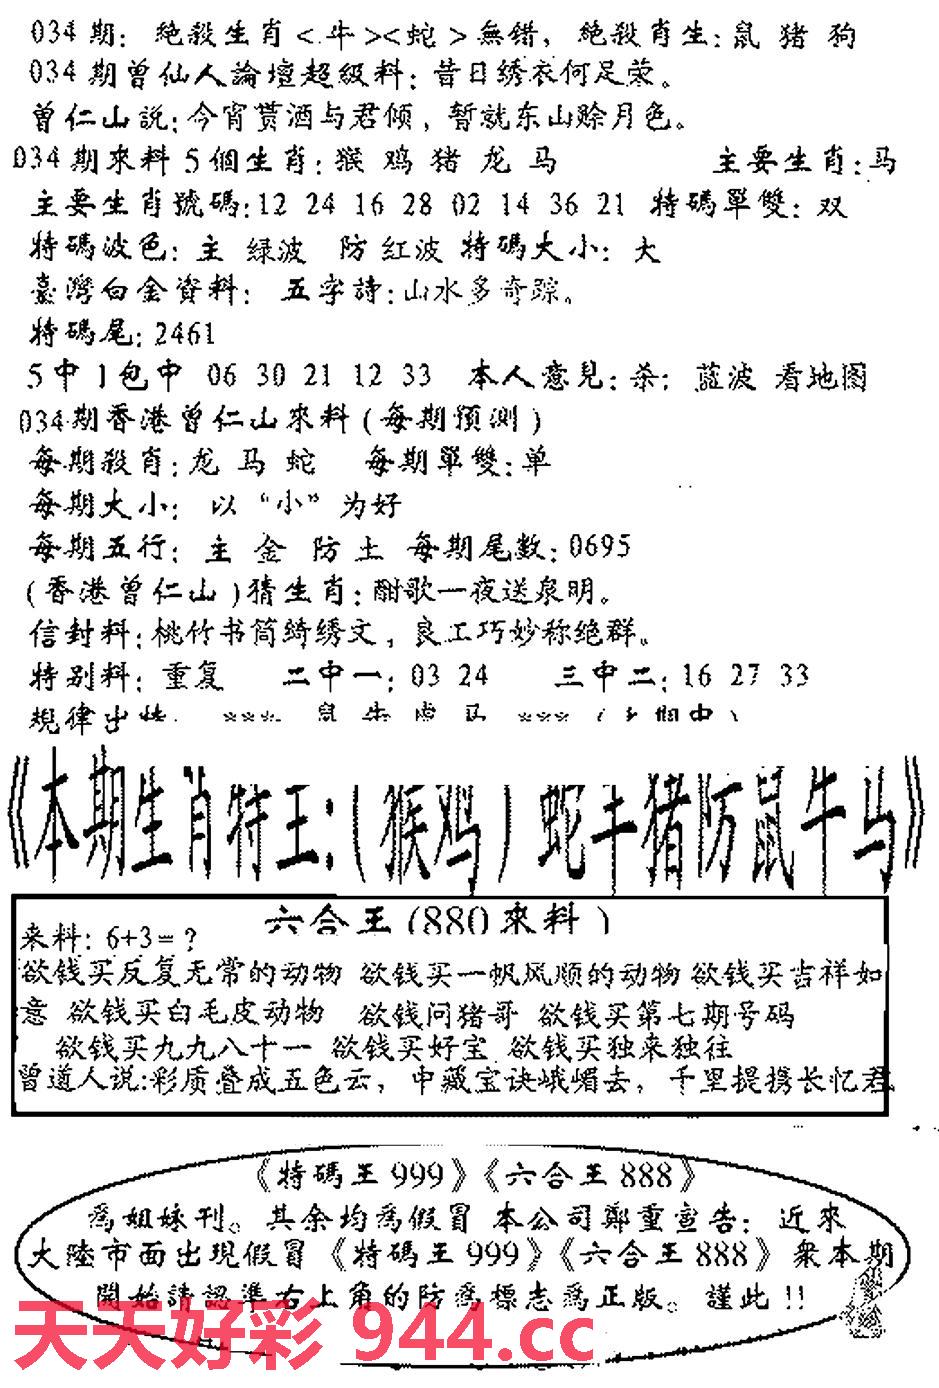 034期：绝殺生肖<牛><蛇>無错，绝殺肖生：鼠 猪 狗
034期曾仙人論壇超級料：昔日绣衣何足荣。
曾仁山説：今宵贳酒与君倾，暂就东山赊月色。
034期來料5個生肖：猴 鸡 猪 龙 马 主要生肖：马
主要生肖號碼：12 24 16 28 02 14 36 21 特碼單雙：双
特碼波色：主 绿波 防 红波 特碼大小：大
臺灣白金資料： 五字詩：山水多奇踪。
特碼尾：2461
5中1包中 06 30 21 12 33 本人意見：杀：蓝波 看地图
034期香港曾仁山來料(每期预测)
每期殺肖：龙 马 蛇 每期單雙：单
每期大小： 以“小”为好
每期五行： 主 金 防 土 每期尾数：0695
(香港曾仁山)猜生肖：酣歌一夜送泉明。
信封料：桃竹书筒绮绣文，良工巧妙称绝群。
特别料：重复 二中一：03 24 三中二：16 27 33
規律出特： *** 鼠 牛 虎 马 ***(上期中)
《本期生肖特王：(猴鸡)蛇羊猪防鼠牛马》
六合王(880來料)
来料：6+3=？
欲钱买反复无常的动物 欲钱买一帆风顺的动物 欲钱买吉祥如
意 欲钱买白毛皮动物 欲钱问猪哥 欲钱买第七期号码
欲钱买九九八十一 欲钱买好宝 欲钱买独来独往
曾道人说：彩质叠成五色云，中藏宝诀峨嵋去，千里提携长忆君
《特碼王999》《六合王888》
爲姐妹刊。其余均爲假冒 本公司鄭重宣告：近來
大陸市面出現假冒《特碼王999》《六合王888》衆本期
開始請認準右上角的防爲標志爲正版。謹此!!
天天好彩 944.cc